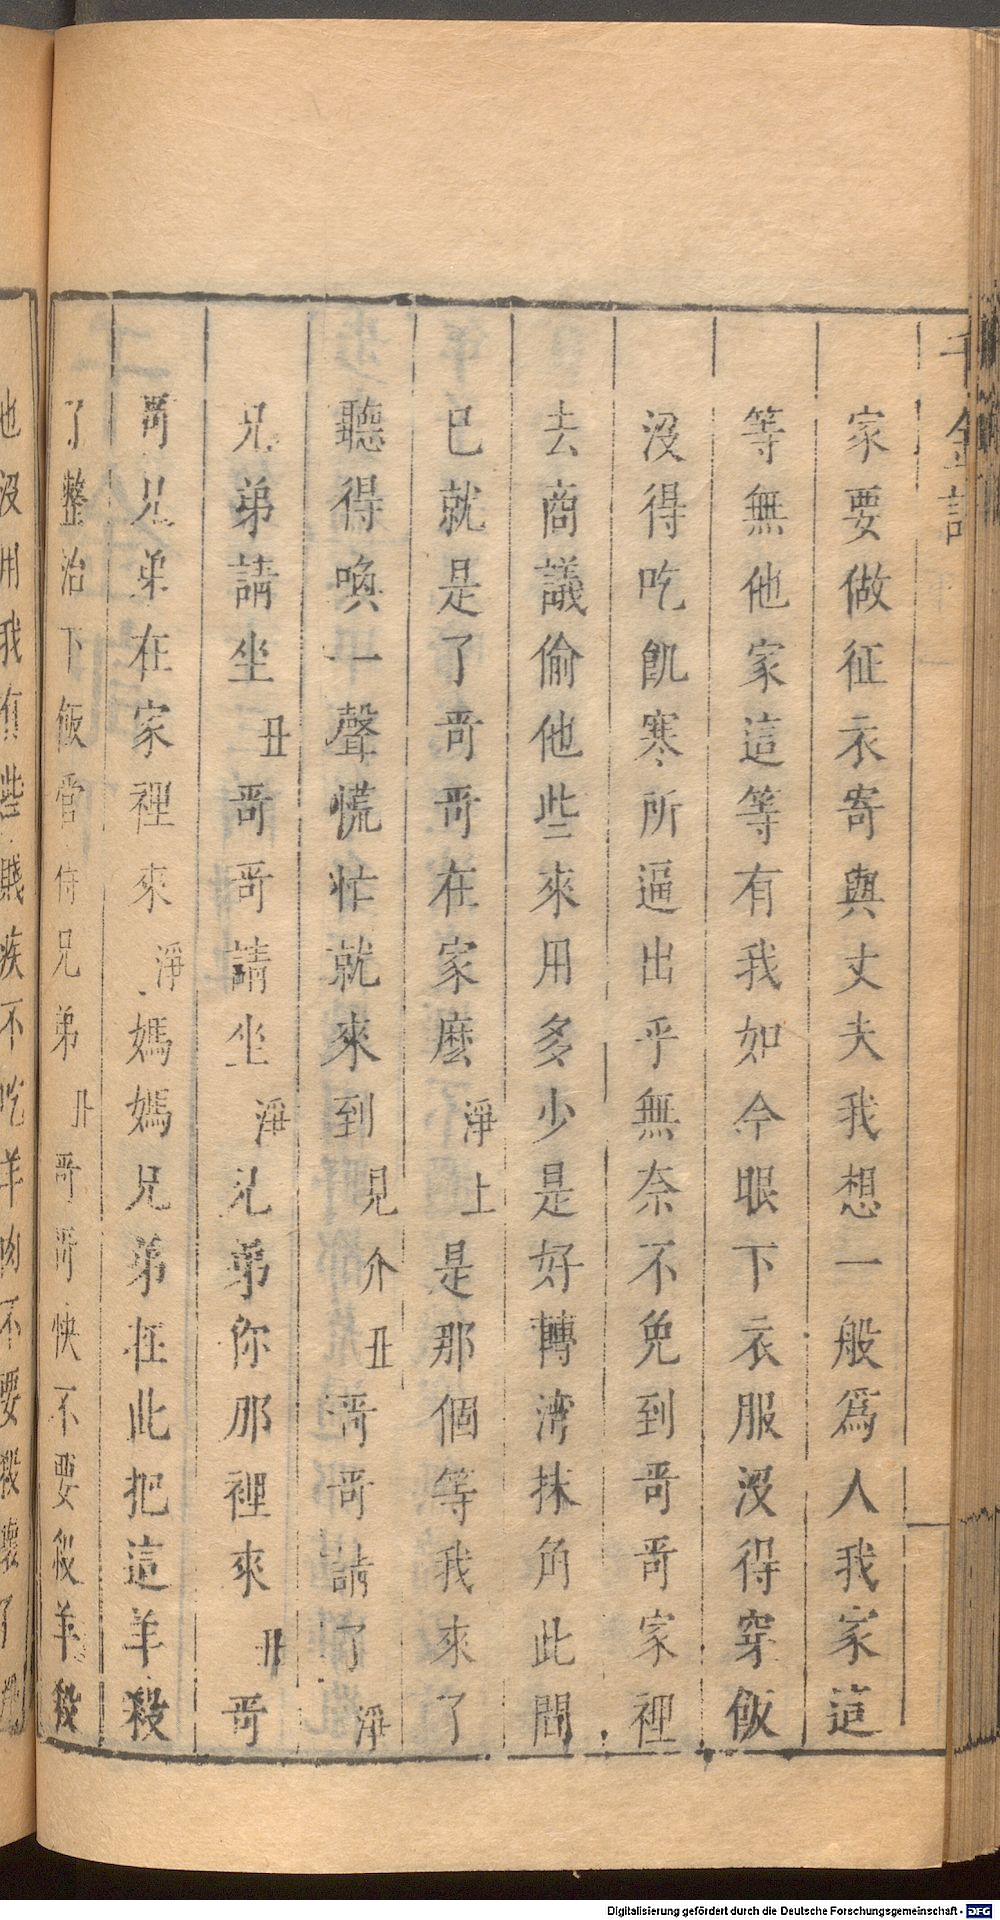 千金記
家要做征衣寄與丈夫我想一般爲人我家這
等無他家這等有我如今眼下衣服沒得穿飯
沒得吃飢寒所逼出乎無奈不免到哥哥家裡
去商議偷他些來用多少是好轉湾抹角此間
已就是了哥哥在家麼淨上是那個等我來了
聽得喚一聲慌忙就來到見介丑哥哥請了淨
兄弟請坐丑哥哥請坐淨兄弟你那裡來丑哥
哥兄弟在家裡來淨媽媽兄弟在此把這羊殺
了整治下飯管待兄弟丑哥哥快不要殺羊殺
也沒用我有些賤疾不吃羊肉不要殺壞了
Digitalisierung gefördert durch die Deutsche Forschungsgemeinschaft - DFG